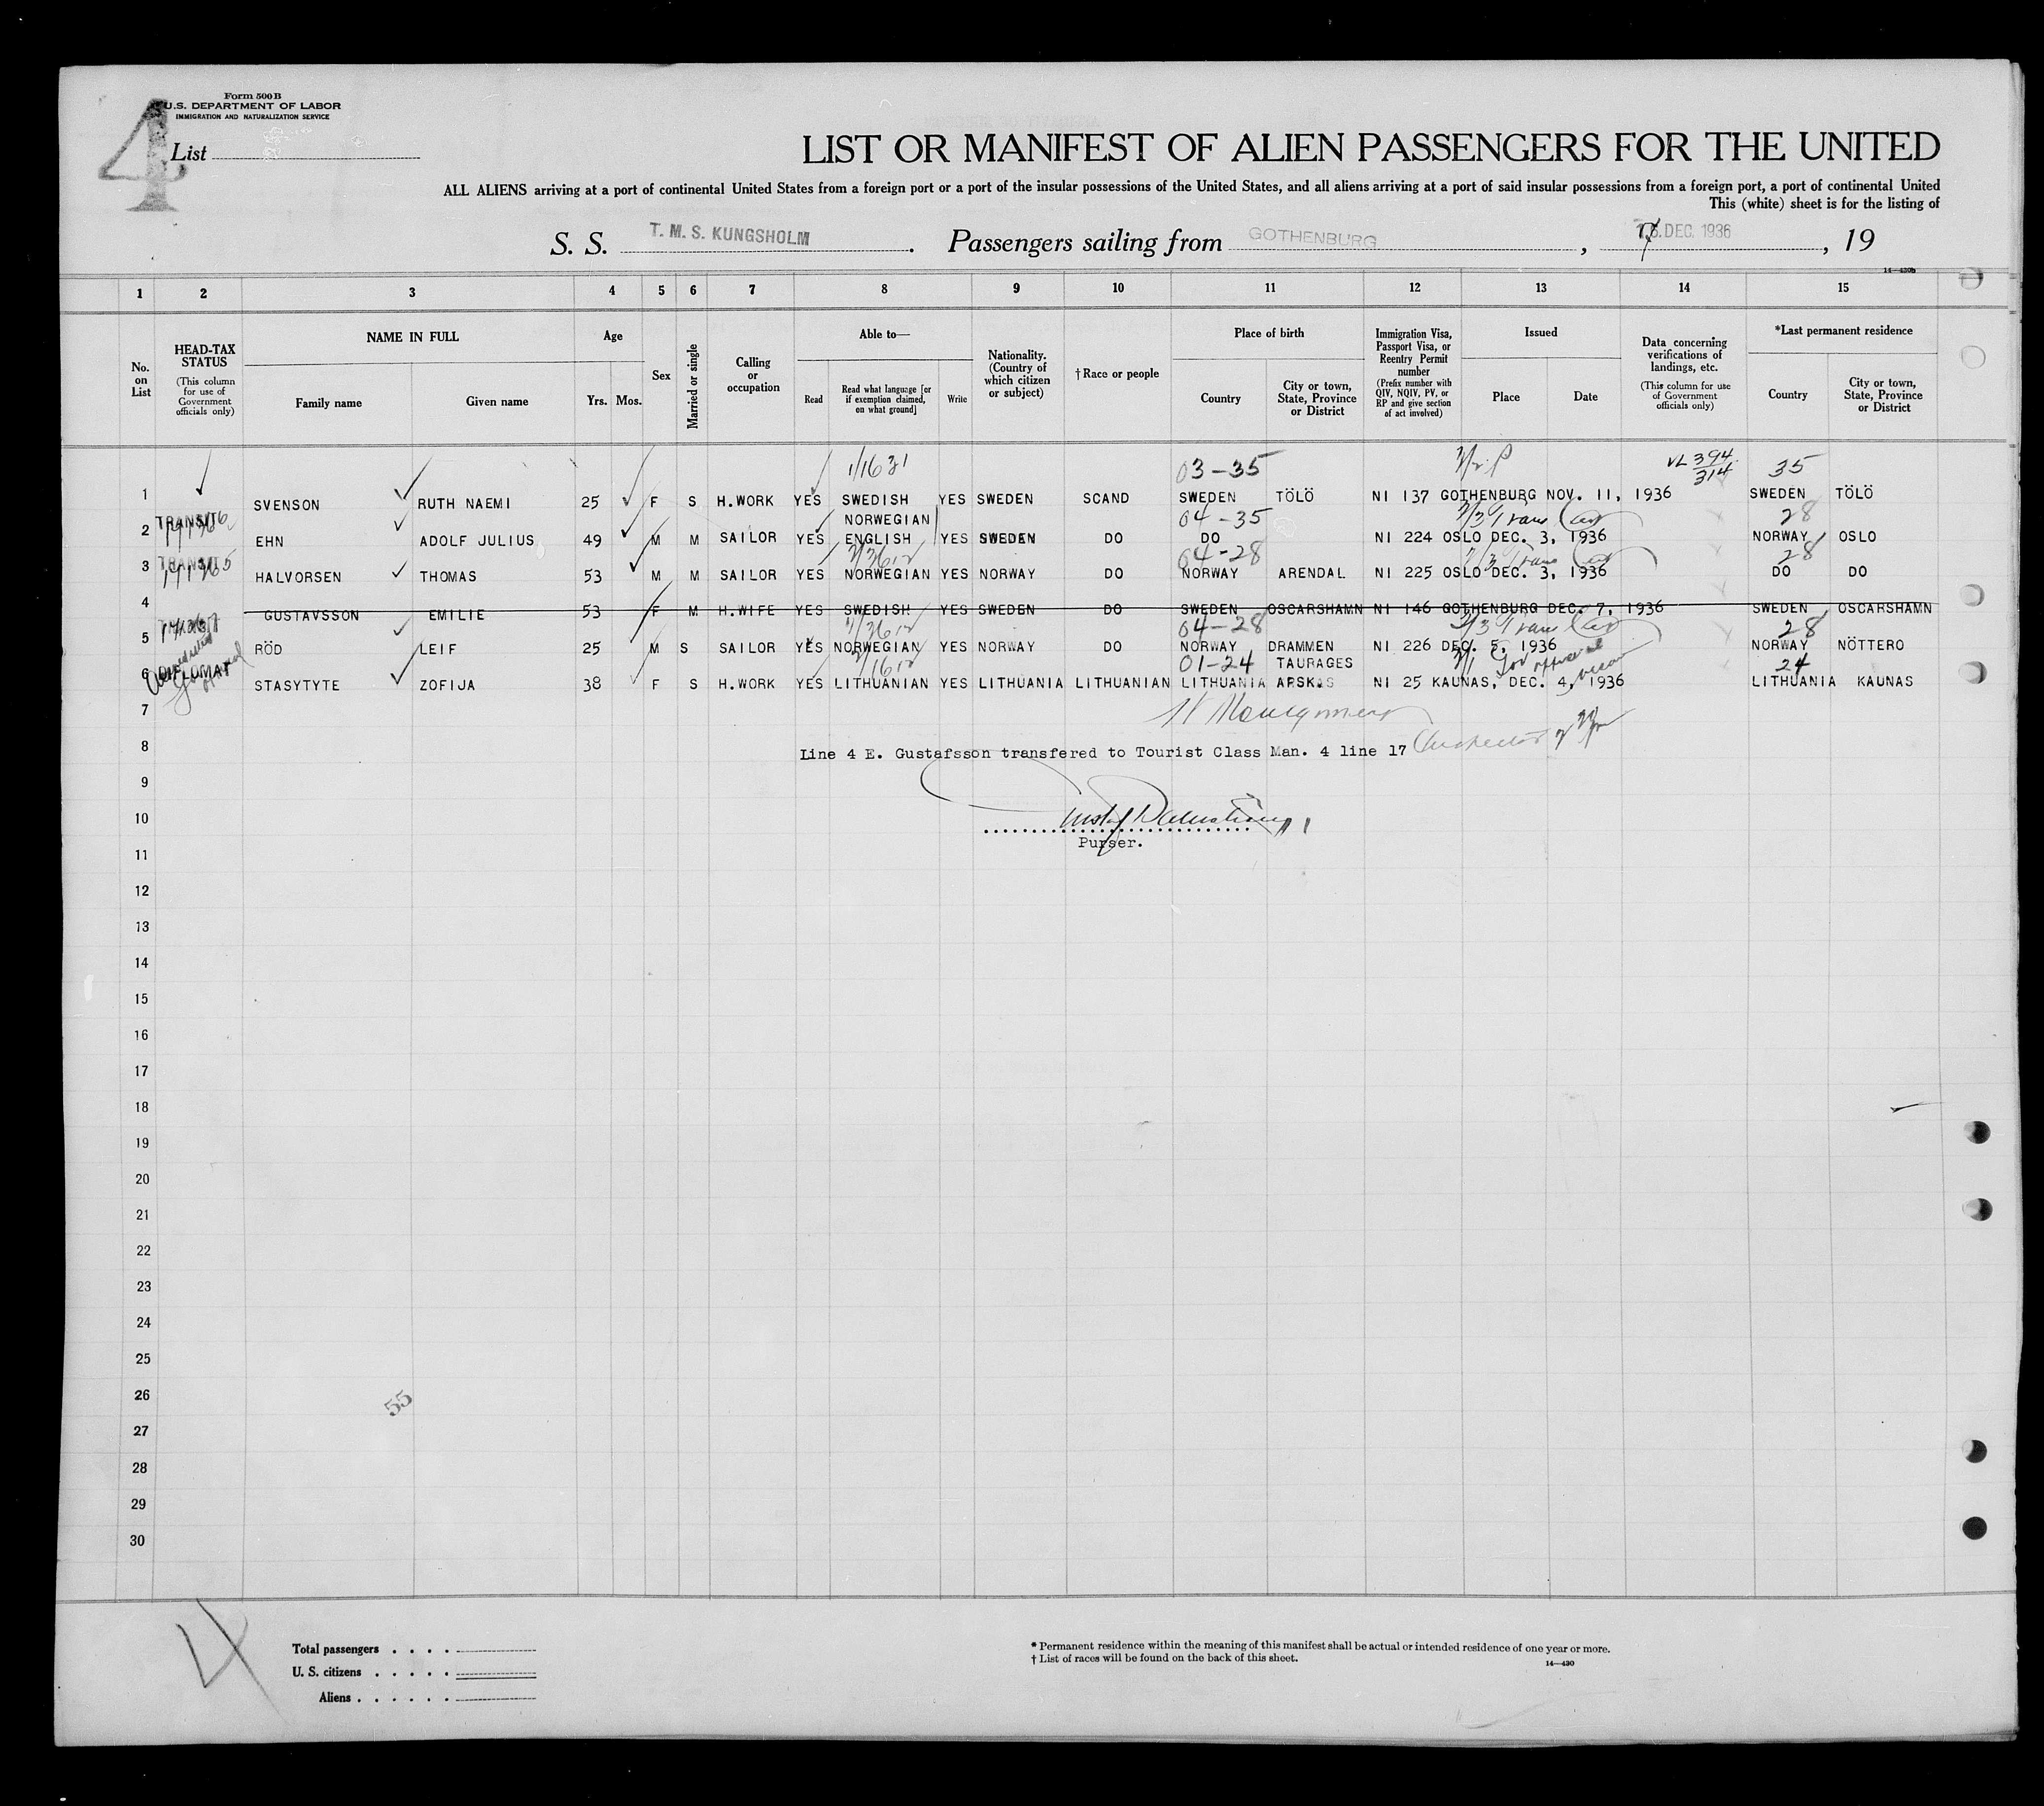 Form 500 B
U.S. DEPARTMENT OF LABOR
IMMIGRATION AND NATURALIZATION SERVICE
4
List
LIST OR MANIFEST OF ALIEN PASSENGERS FOR THE UNITED
ALL ALIENS arriving at a port of continental United States from a foreign port or a port of the insular possessions of the United States, and all aliens arriving at a port of said insular possessions from a foreign port, a port of continental United
This (white) sheet is for the listing of
S. S. T. M. S. KUNGSHOLM. Passengers sailing from GOTHENBURG, DEC. 1936, 19
14—430b
1 2 3 4 5 6 7 8 9 10 11 12 13 14 15
No. on List
HEAD-TAX STATUS (This column for use of Government officials only)
NAME IN FULL
Family name
Given name
Age
Yrs. Mos.
Sex
Married or single
Calling or occupation
Able to—
Read
Read what language [or if exemption claimed, on what ground]
Write
Nationality. (Country of which citizen or subject)
† Race or people
Place of birth
Country
City or town, State, Province or District
Immigration Visa, Passport Visa, or Reentry Permit number (Prefix number with QIV, NQIV, PV, or RP and give section of act involved)
Issued
Place
Date
Data concerning verifications of landings, etc. (This column for use of Government officials only)
*Last permanent residence
Country
City or town, State, Province or District
03-35 VL 394 314 35
1 SVENSON RUTH NAEMI 25 F S H.WORK YES SWEDISH YES SWEDEN SCAND SWEDEN TÖLÖ NI 137 GOTHENBURG NOV. 11, 1936 SWEDEN TÖLÖ
TRANSIT NORWEGIAN 04-35 28
2 EHN ADOLF JULIUS 49 M M SAILOR YES ENGLISH YES SWEDEN DO DO NI 224 OSLO DEC. 3, 1936 NORWAY OSLO
TRANSIT 04-28 28
3 HALVORSEN THOMAS 53 M M SAILOR YES NORWEGIAN YES NORWAY DO NORWAY ARENDAL NI 225 OSLO DEC. 3, 1936 DO DO
4 GUSTAVSSON EMILIE 53 F M H.WIFE YES SWEDISH YES SWEDEN DO SWEDEN OSCARSHAMN NI 146 GOTHENBURG DEC. 7, 1936 SWEDEN OSCARSHAMN
04-28 28
5 RÖD LEIF 25 M S SAILOR YES NORWEGIAN YES NORWAY DO NORWAY DRAMMEN NI 226 DEC. 5, 1936 NORWAY NÖTTERO
DIPLOMAT 01-24 TAURAGES 24
6 STASYTYTE ZOFIJA 38 F S H.WORK YES LITHUANIAN YES LITHUANIA LITHUANIAN LITHUANIA APSKAS NI 25 KAUNAS, DEC. 4, 1936 LITHUANIA KAUNAS
7
8 Line 4 E. Gustafsson transfered to Tourist Class Man. 4 line 17
9
10
Purser.
11
12
13
14
15
16
17
18
19
20
21
22
23
24
25
26
55
27
28
29
30
4
Total passengers . . . .
U. S. citizens . . . . .
Aliens . . . . . .
* Permanent residence within the meaning of this manifest shall be actual or intended residence of one year or more.
† List of races will be found on the back of this sheet.
14—430